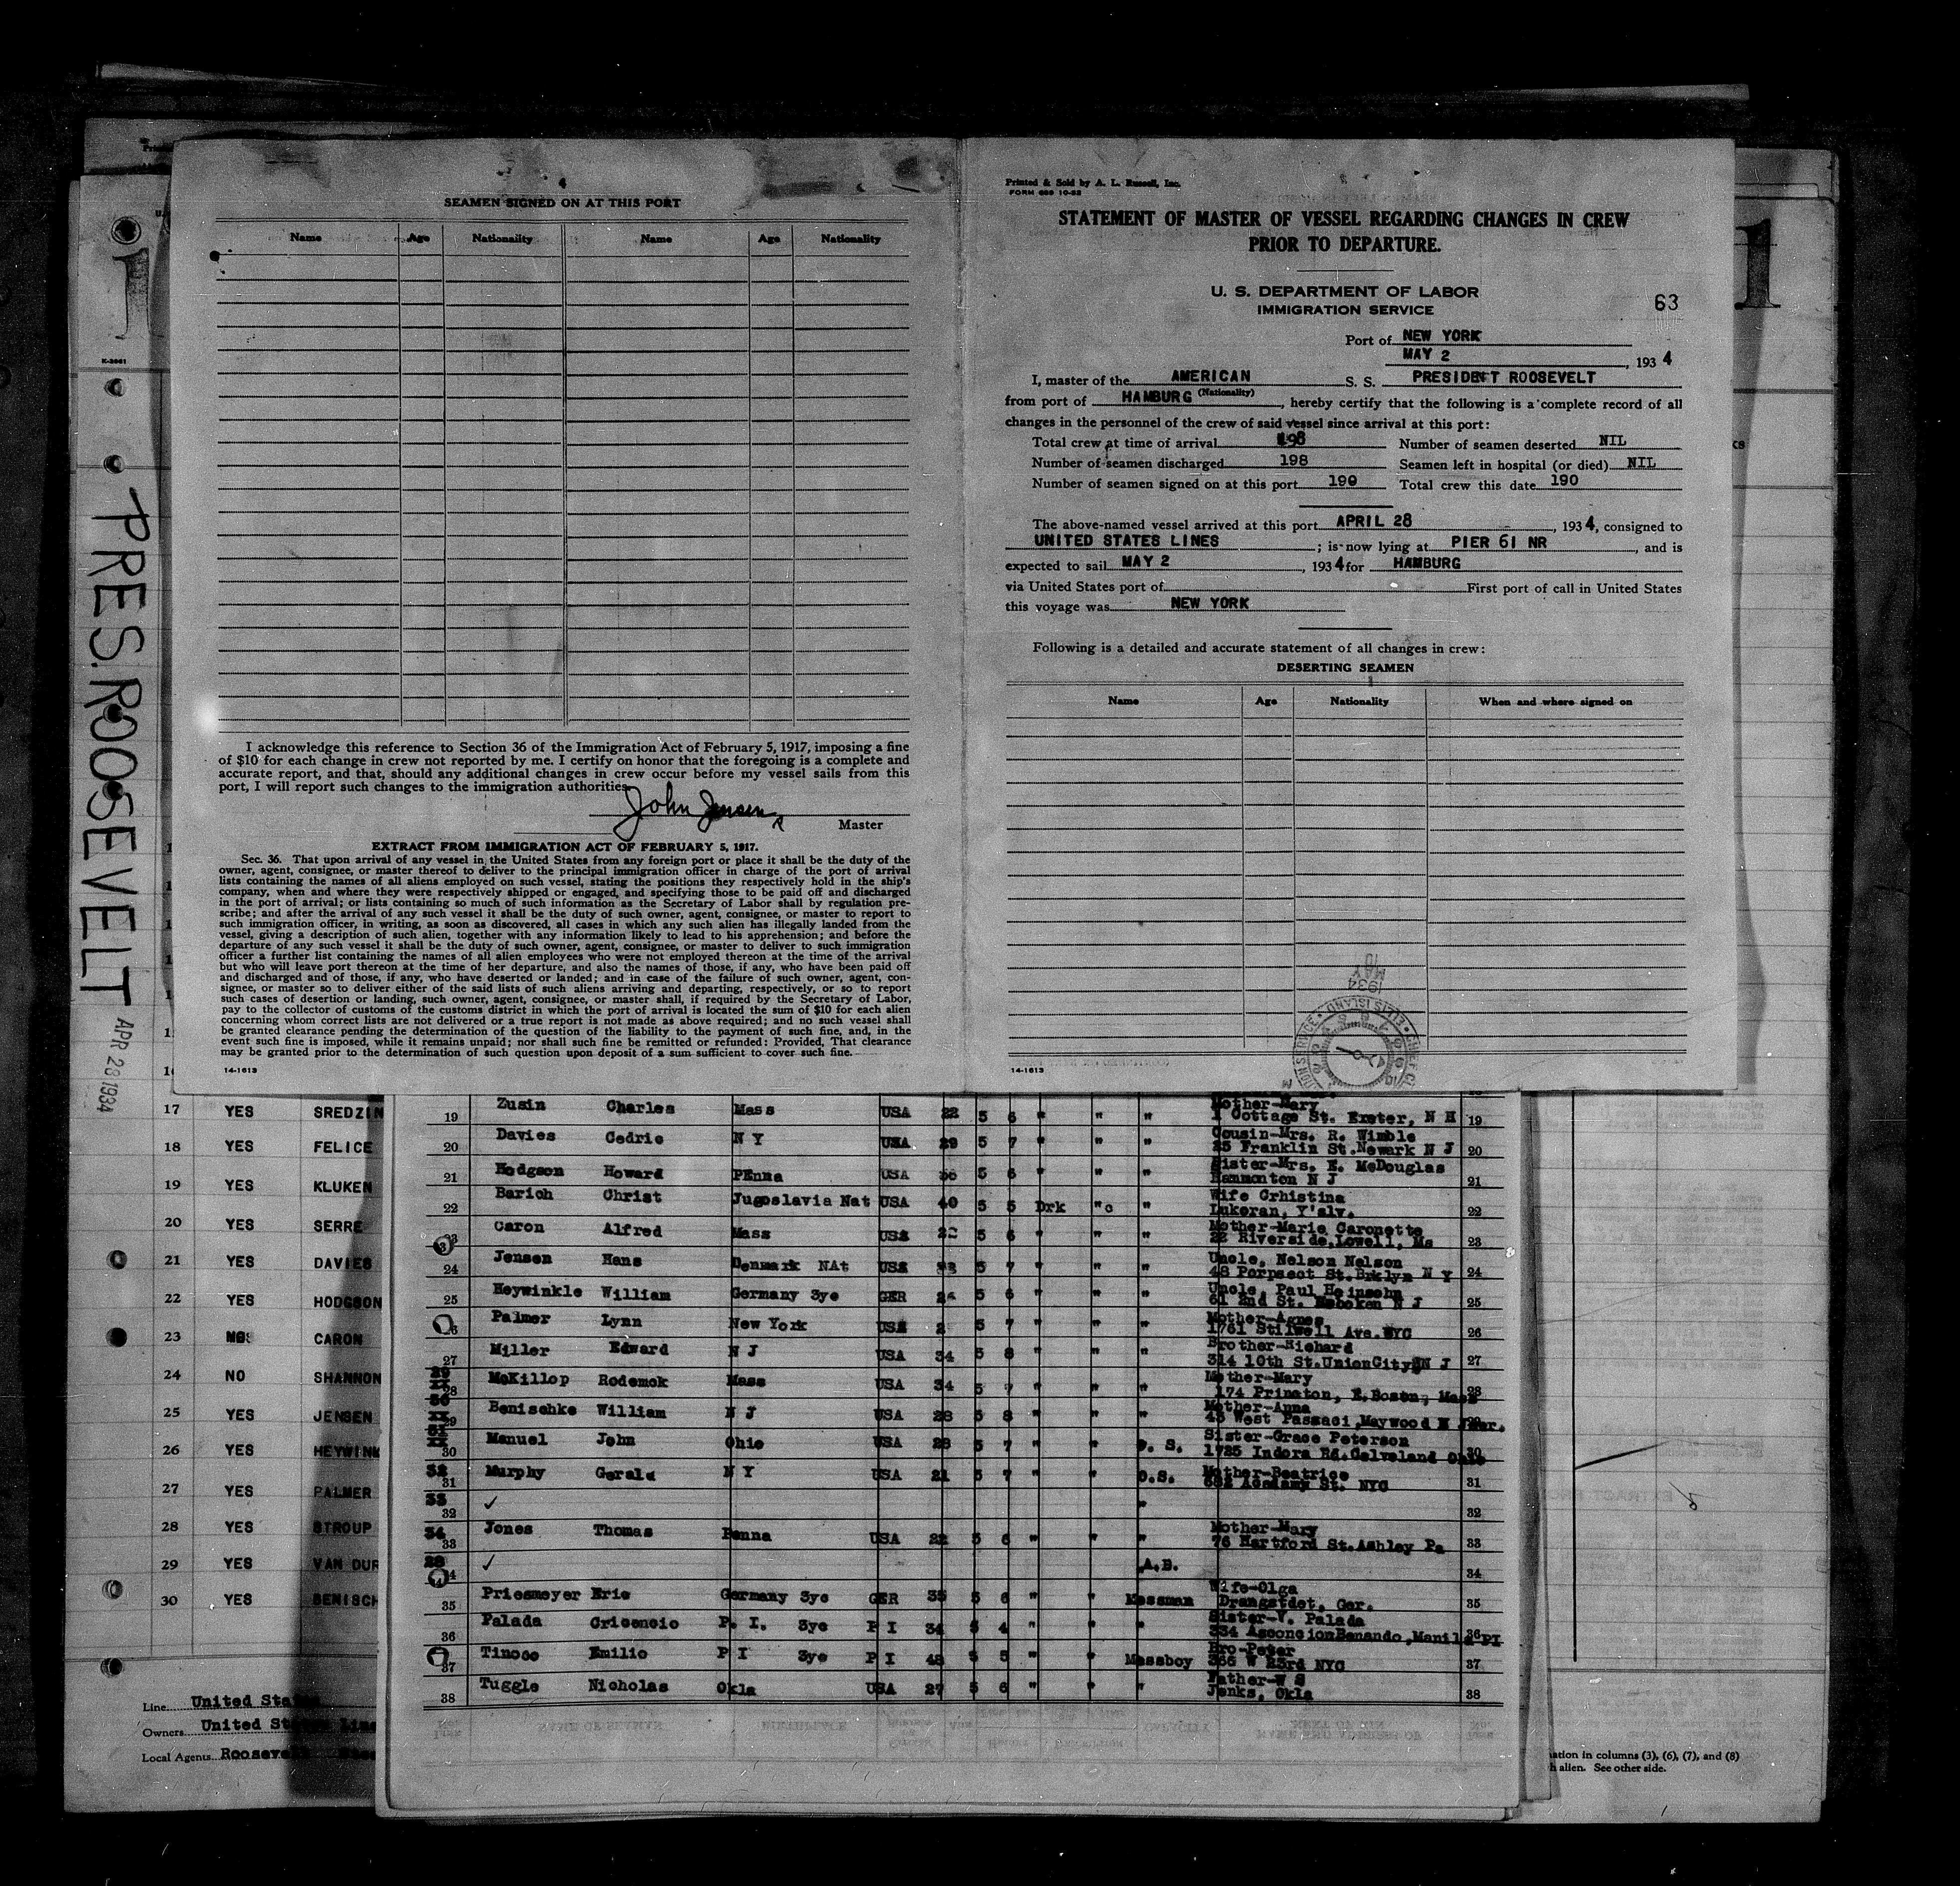 4
SEAMEN SIGNED ON AT THIS PORT
Name Age Nationality Name Age Nationality
I acknowledge this reference to Section 36 of the Immigration Act of February 5, 1917, imposing a fine
of $10 for each change in crew not reported by me. I certify on honor that the foregoing is a complete and
accurate report, and that, should any additional changes in crew occur before my vessel sails from this
port, I will report such changes to the immigration authorities.
John Jensen
Master
EXTRACT FROM IMMIGRATION ACT OF FEBRUARY 5, 1917.
Sec. 36. That upon arrival of any vessel in the United States from any foreign port or place it shall be the duty of the
owner, agent, consignee, or master thereof to deliver to the principal immigration officer in charge of the port of arrival
lists containing the names of all aliens employed on such vessel, stating the positions they respectively hold in the ship's
company, when and where they were respectively shipped or engaged, and specifying those to be paid off and discharged
in the port of arrival; or lists containing so much of such information as the Secretary of Labor shall by regulation pre-
scribe; and after the arrival of any such vessel it shall be the duty of such owner, agent, consignee, or master to report to
such immigration officer, in writing, as soon as discovered, all cases in which any such alien has illegally landed from the
vessel, giving a description of such alien, together with any information likely to lead to his apprehension; and before the
departure of any such vessel it shall be the duty of such owner, agent, consignee, or master to deliver to such immigration
officer a further list containing the names of all alien employees who were not employed thereon at the time of the arrival
but who will leave port thereon at the time of her departure, and also the names of those, if any, who have been paid off
and discharged and of those, if any, who have deserted or landed; and in case of the failure of such owner, agent, con-
signee, or master so to deliver either of the said lists of such aliens arriving and departing, respectively, or so to report
such cases of desertion or landing, such owner, agent, consignee, or master shall, if required by the Secretary of Labor,
pay to the collector of customs of the customs district in which the port of arrival is located the sum of $10 for each alien
concerning whom correct lists are not delivered or a true report is not made as above required; and no such vessel shall
be granted clearance pending the determination of the question of the liability to the payment of such fine, and, in the
event such fine is imposed, while it remains unpaid; nor shall such fine be remitted or refunded: Provided, That clearance
may be granted prior to the determination of such question upon deposit of a sum sufficient to cover such fine.
14-1613
Printed & Sold by A. L. Russell, Inc.
FORM 689 10-32
STATEMENT OF MASTER OF VESSEL REGARDING CHANGES IN CREW
PRIOR TO DEPARTURE.
U. S. DEPARTMENT OF LABOR
IMMIGRATION SERVICE
63
Port of NEW YORK
MAY 2, 1934
I, master of the AMERICAN S. S. PRESIDENT ROOSEVELT
(Nationality)
from port of HAMBURG, hereby certify that the following is a complete record of all
changes in the personnel of the crew of said vessel since arrival at this port:
Total crew at time of arrival 198 Number of seamen deserted NIL
Number of seamen discharged 198 Seamen left in hospital (or died) NIL
Number of seamen signed on at this port 190 Total crew this date 190
The above-named vessel arrived at this port APRIL 28, 1934, consigned to
UNITED STATES LINES; is now lying at PIER 61 NR, and is
expected to sail MAY 2, 1934 for HAMBURG
via United States port of First port of call in United States
this voyage was NEW YORK
Following is a detailed and accurate statement of all changes in crew:
DESERTING SEAMEN
Name Age Nationality When and where signed on
MAY 10 1934
ELLIS ISLAND
14-1613
1
K-2961
PRES. ROOSEVELT APR 28 1934
17 YES SREDZIN
18 YES FELICE
19 YES KLUKEN
20 YES SERRE
21 YES DAVIES
22 YES HODGSON
23 CARON
24 NO SHANNON
25 YES JENSEN
26 YES HEYWINK
27 YES PALMER
28 YES STROUP
29 YES VAN DUR
30 YES BENISCH
Line United Sta
Owners United States Line
Local Agents Roosevel
19 Zusin Charles Mass USA 22 5 6 " " " Mother-Mary
1 Cottage St. Exeter, N H 19
20 Davies Cedric N Y USA 29 5 7 " " " Cousin-Mrs. R. Wimble
25 Franklin St.Newark N J 20
21 Hodgson Howard PEnna USA 5 6 " " " Sister-Mrs. E. McDouglas
Hammonton N J 21
22 Barich Christ Jugoslavia Nat USA 40 5 5 Drk " " Wife Crhistina
Lukoran, Y'alv. 22
Caron Alfred Mass USA 5 6 " " " Mother-Marie Caronette
22 Riverside,Lowell, Ms 23
24 Jensen Hans Denmark NAt USA 5 7 " " " Uncle, Nelson Nelson
48 Porpsect St.Brklyn N Y 24
25 Heywinkle William Germany 3ye GER 5 6 " " " Uncle, Paul Heinsohn
61 2nd St. Hoboken N J 25
Palmer Lynn New York USA 5 7 " " " Mother-Agnes
1761 Stilwell Ave.NYC 26
27 Miller Edward N J USA 34 5 8 " " " Brother-Richard
314 10th St.UnionCity N J 27
28 McKillop Rodemok Mass USA 34 5 7 " " " Mother-Mary
174 Prinaton, E.Boston, Mass 28
29 Benischke William N J USA 28 5 8 " " " Mother-Anna
45 West Passaci,Maywood N J
30 Manuel John Ohio USA 28 5 7 " " O. S. Sister-Grace Peterson
1725 Indora Rd.Celveland Ohio 30
32 31 Murphy Gerald N Y USA 21 5 7 " " O.S. Mother-Beatrice
682 Academy St. NYC 31
33 32 ✓ " 32
34 33 Jones Thomas Penna USA 22 5 6 " " " Mother-Mary
76 Hartford St.Ashley Pa 33
✓ A.B. 34
35 Priesmeyer Eric Germany 3ye GER 35 5 6 " " Messman Wife-Olga
Drangstdet, Ger. 35
36 Palada Cricencio P. I. 3ye P I 34 5 4 " " " Sister-V. Palada
334 AsconcionBenando,Manila PI 36
37 Tinoco Emilio P I 3ye P I 48 5 5 " " Messboy Bro-Peter
366 W 23rd NYC 37
38 Tuggle Nicholas Okla USA 27 5 6 " " " Father-W S
Jenks, Okla 38
ation in columns (3), (6), (7), and (8)
h alien. See other side.
1